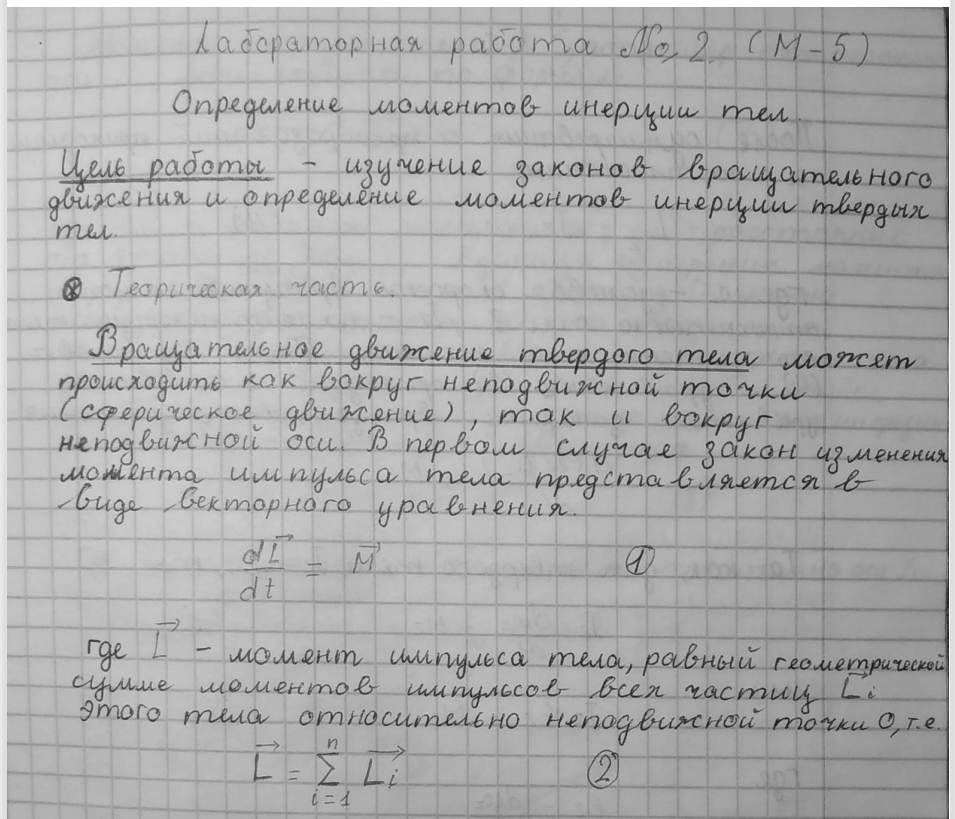 Лабораторная работа No 2. (М-5)
Определение моментов инерции тел.
Цель работы - изучение законов вращательного
движения и определение моментов инерции твердых
тел.
Теорическая часть.
Вращательное движение твердого тела может
происходить как вокруг неподвижной точки
(сферическое движение), так и вокруг
неподвижной оси. В первом случае закон изменения
момента импульса тела представляется в
виде векторного уравнения.
dL⃗/dt = M⃗ ①
где L⃗ - момент импульса тела, равный геометрической
сумме моментов импульсов всех частиц L⃗i
этого тела относительно неподвижной точки О, т.е.
L⃗ = ∑ⁿᵢ₌₁ L⃗i ②